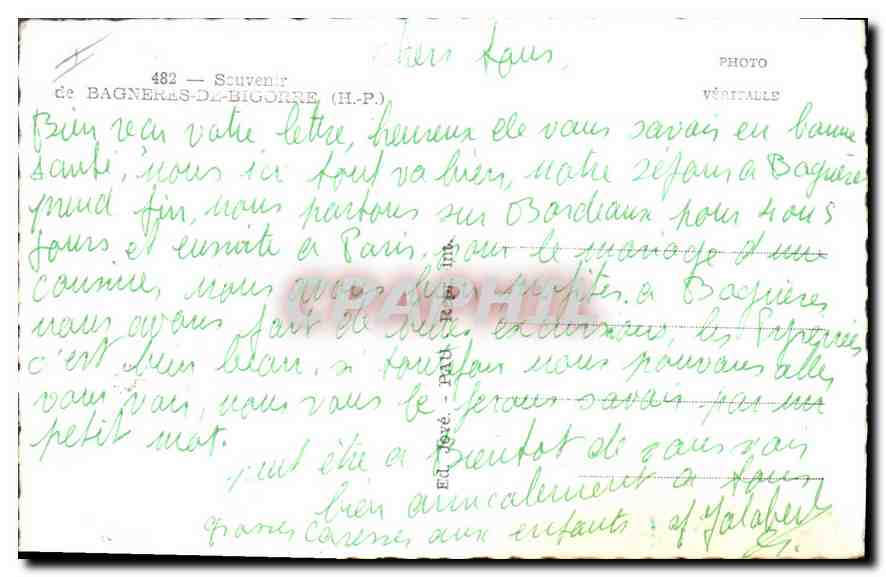 chers tous
482 — Souvenir
de BAGNERES-DE-BIGORRE (H.-P.)
PHOTO
VÉRITABLE
Bien reçu votre lettre, heureux de vous savoir en bonne
santé, nous ici tout va bien, notre séjour a Bagnères
prend fin, nous partons sur Bordeaux pour 4 ou 5
jours et ensuite a Paris, pour le mariage d'un
cousines nous avons bien profités a Bagnères
nous avons fait de belles excursions, les Pyrénées
c'est bien beau. si toutfois nous pouvons aller
vous voir, nous vous le ferons savoir par un
petit mot.
peut être a Bientot de vous voir
bien amicalement a tous
grosses caresses aux enfants. Jalabert
Ed. Jové. - PAU - Rep. Int.
CPAPHIL